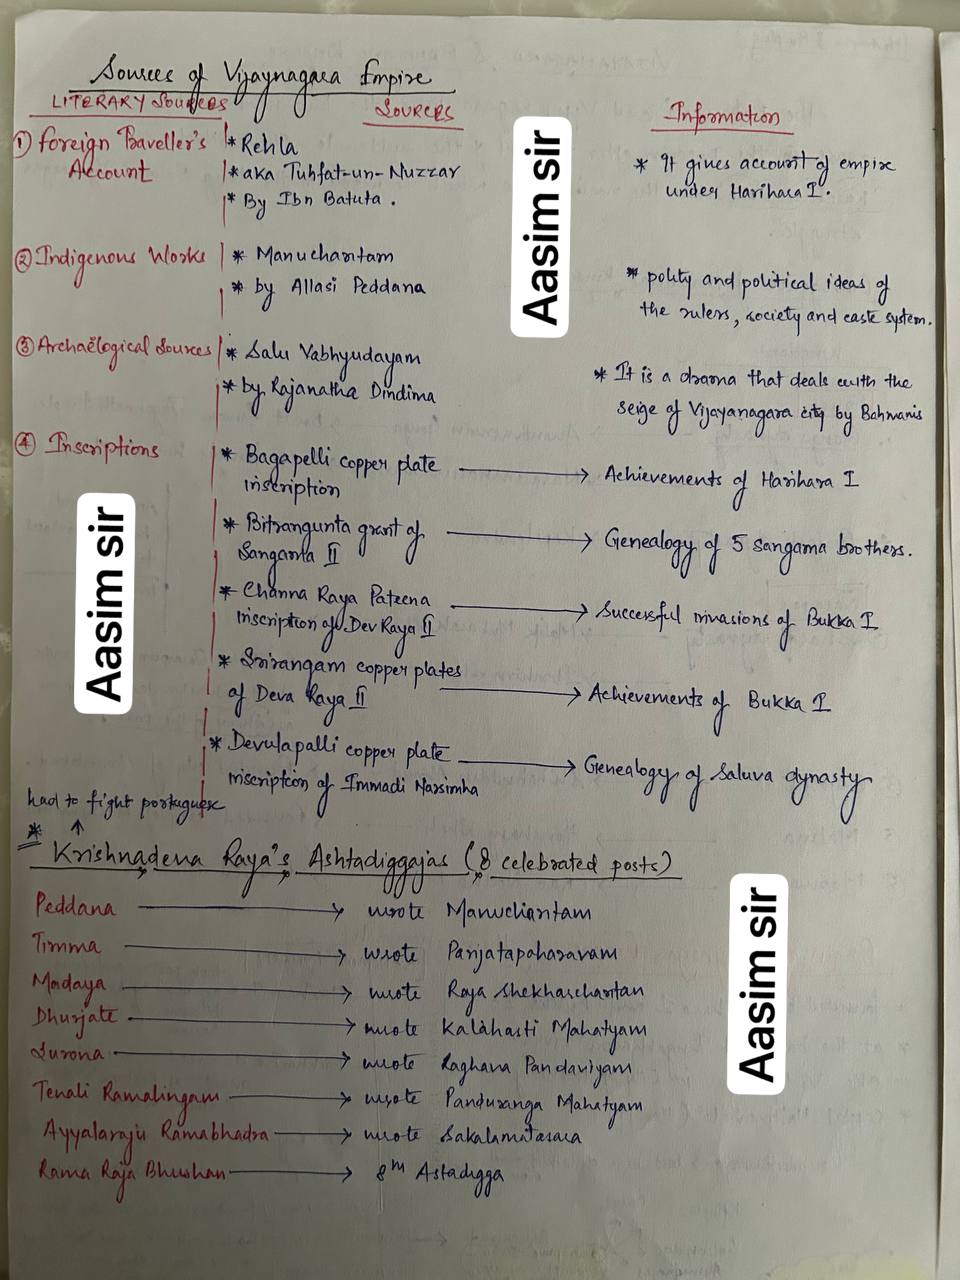 Sources of Vijaynagara Empire
LITERARY SOURCES
SOURCES
Information
① Foreign Traveller's Account
* Rehla
* aka Tuhfat-un-Nuzzar
* By Ibn Batuta.
* It gives account of empire
under Harihara I.
② Indigenous Works
* Manucharitam
* by Allasi Peddana
* polity and political ideas of
the rulers, society and caste system.
③ Archaelogical Sources
* Salu Vabhyudayam
* by Rajanatha Dindima
* It is a drama that deals with the
seige of Vijayanagara city by Bahmanis
④ Inscriptions
* Bagapelli copper plate
inscription
→ Achievements of Harihara I
* Bitrangunta grant of
Sangama II
→ Genealogy of 5 sangama brothers.
* Channa Raya Pateena
inscription of Dev Raya II
→ Successful invasions of Bukka I
* Srirangam copper plates
of Deva Raya II
→ Achievements of Bukka I
* Devulapalli copper plate
inscription of Immadi Narsimha
→ Genealogy of Saluva dynasty
had to fight portuguese
↑
* Krishnadeva Raya's Ashtadiggajas (8 celebrated posts)
Peddana → wrote Manucharitam
Timma → wrote Parijatapaharavam
Madaya → wrote Raja Shekharcharitan
Dhurjate → wrote Kalahasti Mahatyam
Surona → wrote Raghava Pandaviyam
Tenali Ramalingam → wrote Panduranga Mahatyam
Ayyalaraju Ramabhadra → wrote Sakalamatasara
Rama Raja Bhushan → 8th Astadigga
Aasim sir
Aasim sir
Aasim sir